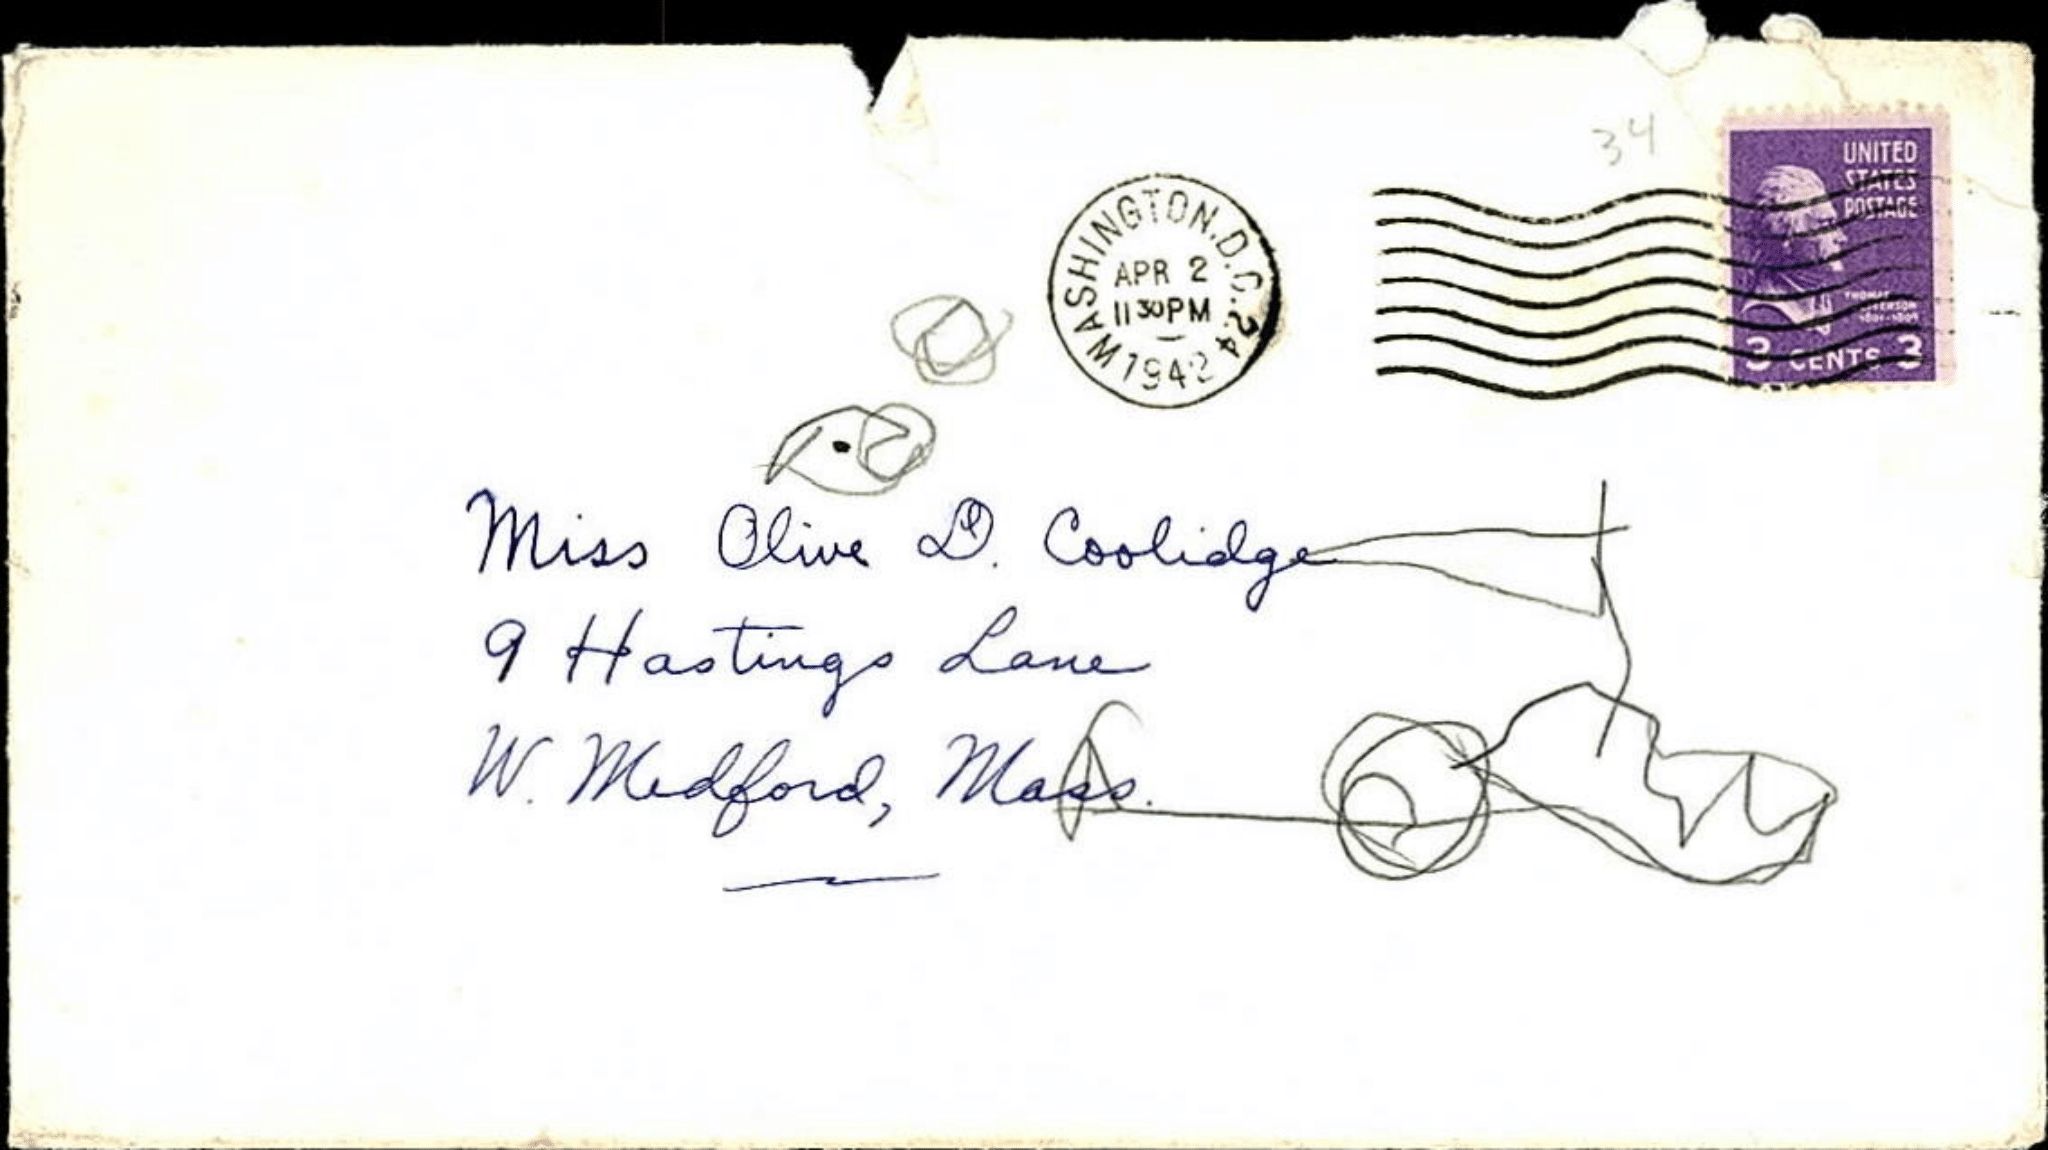 34
UNITED
STATES
POSTAGE
THOMAS
JEFFERSON
1801-1809
3 CENTS 3
WASHINGTON, D.C. 24
APR 2
11 30 PM
1942
Miss Olive D. Coolidge
9 Hastings Lane
W. Medford, Mass.